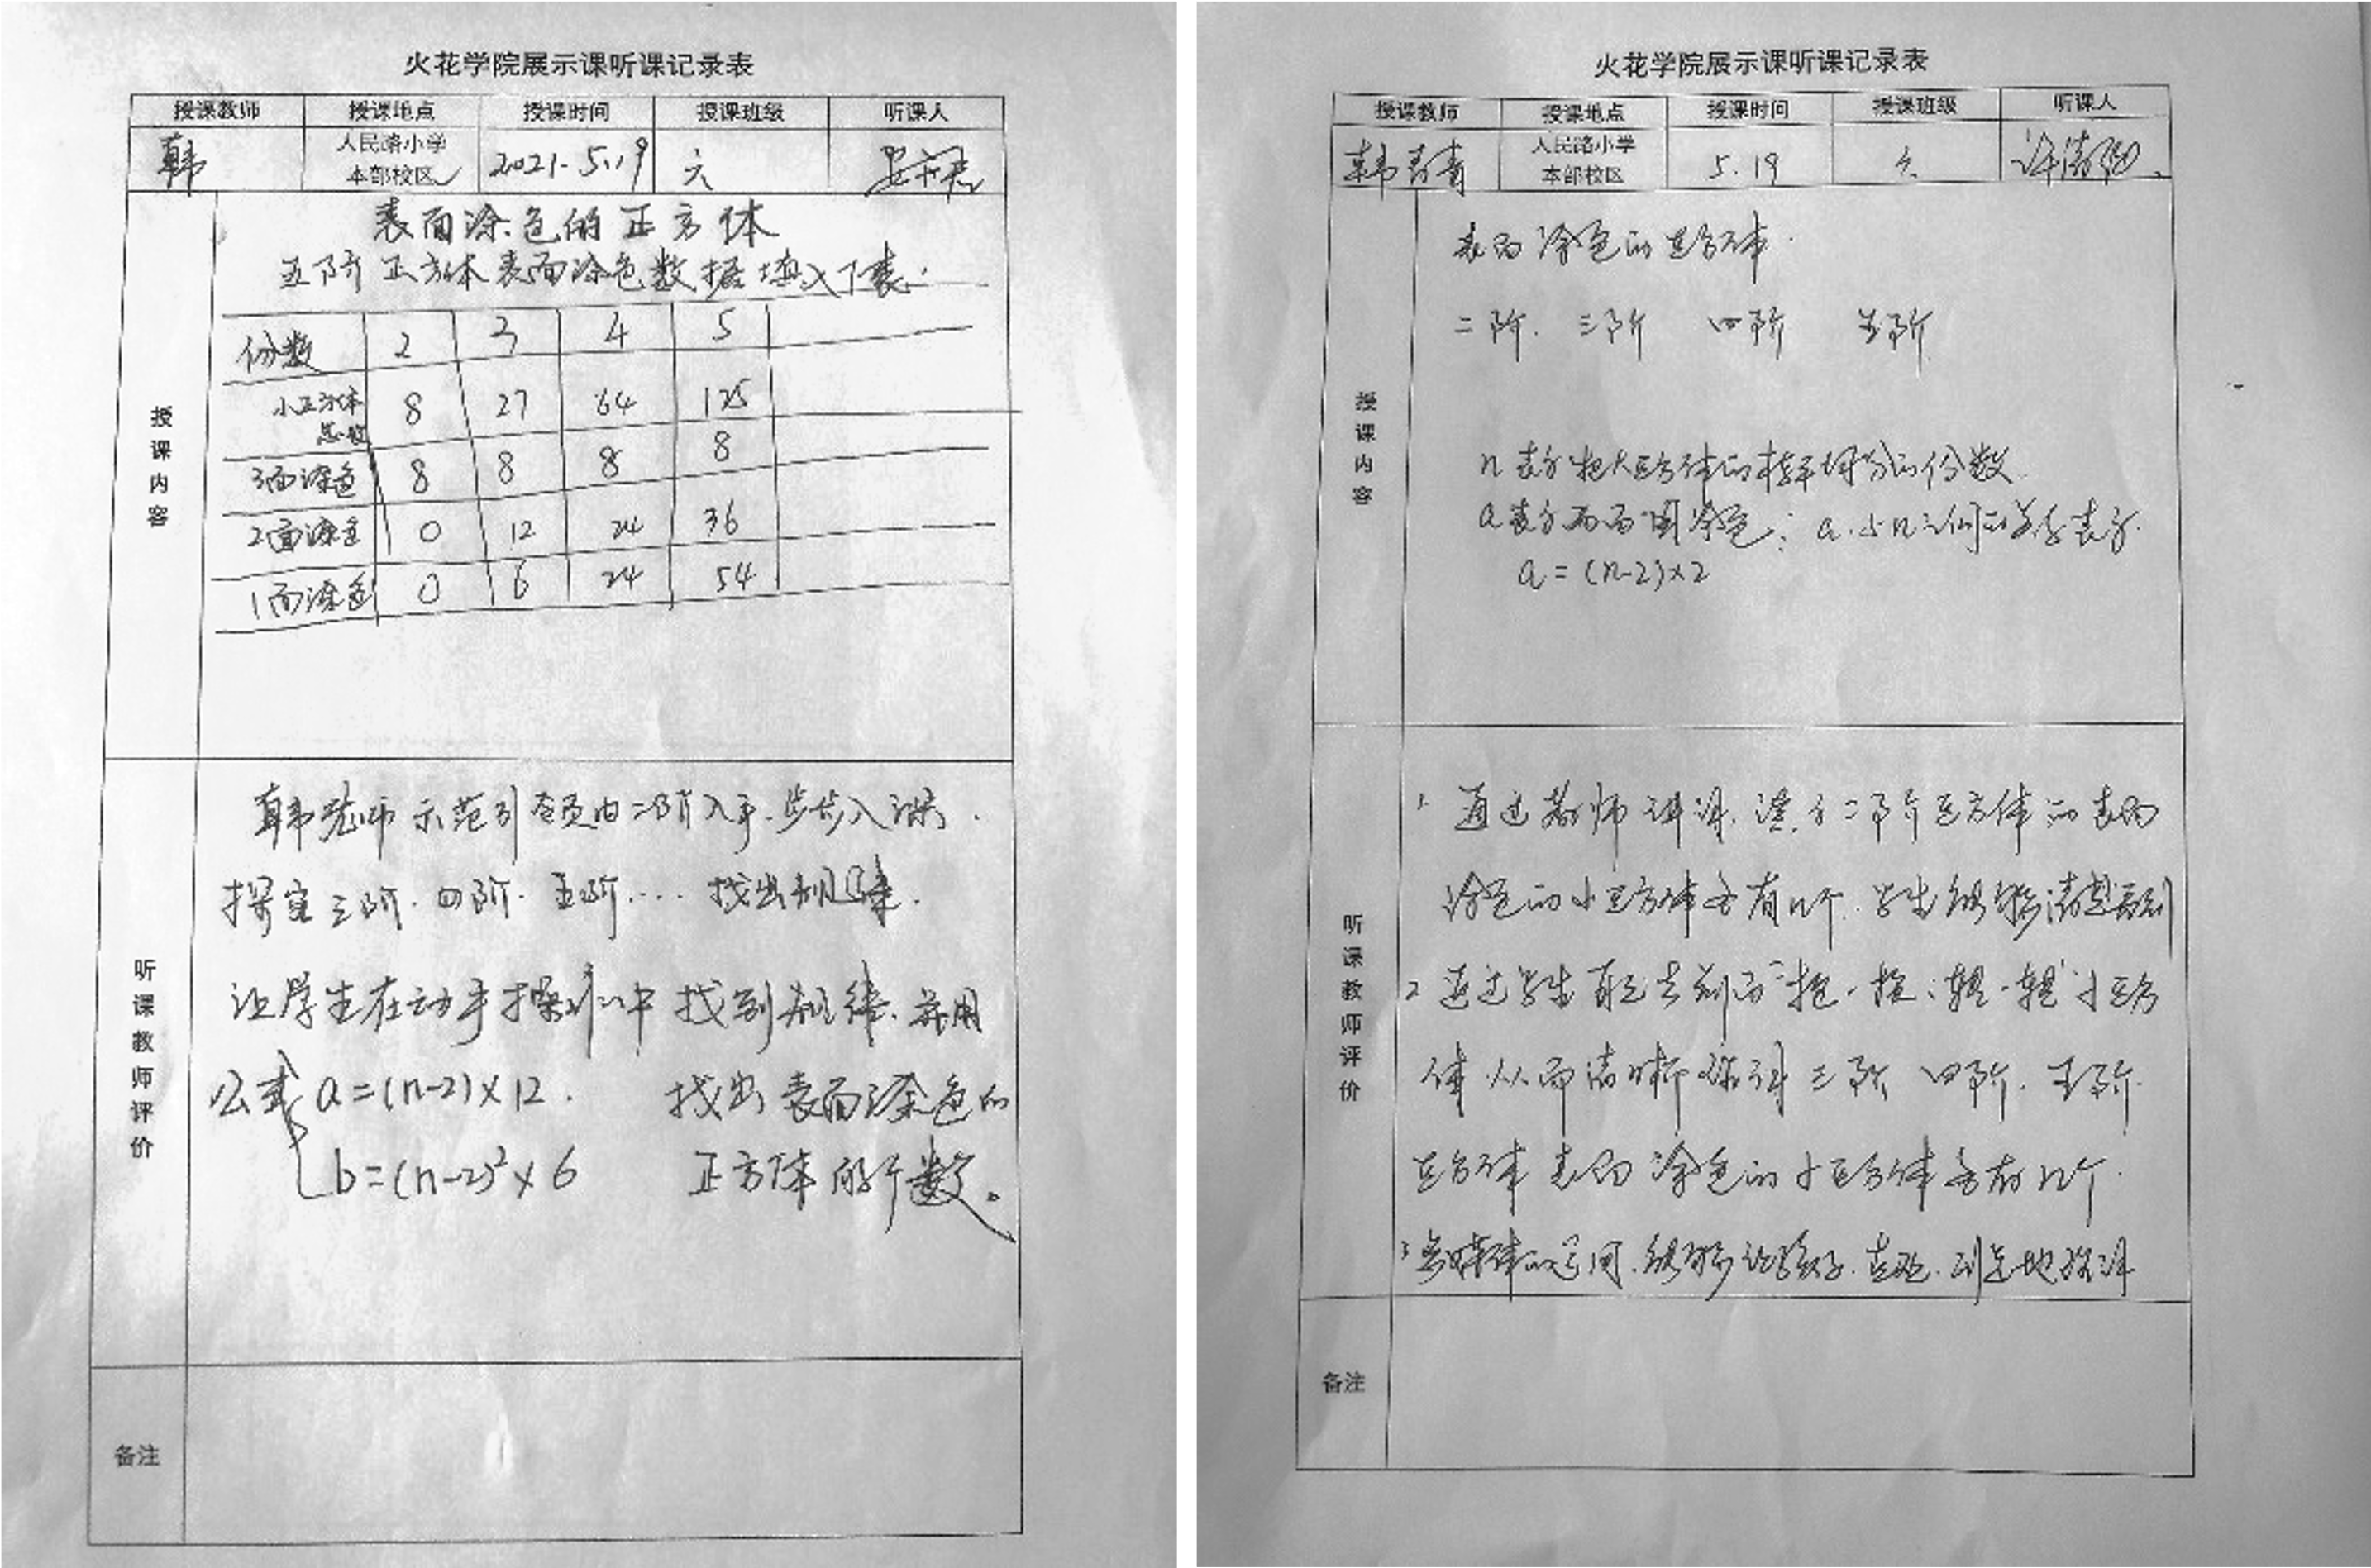 火花学院展示课听课记录表
授课教师 授课地点 授课时间 授课班级 听课人
韩 人民路小学 本部校区 2021.5.19 六
授课内容
表面涂色的正方体
五阶正方体表面涂色数据填入下表:
份数 2 3 4 5
小正方体总数 8 27 64 125
3面涂色 8 8 8 8
2面涂色 0 12 24 36
1面涂色 0 6 24 54
听课教师评价
韩老师示范引领由二阶入手.步步入深.
探究三阶.四阶.五阶... 找出规律.
让学生在动手操作中找到规律.并用
公式 a=(n-2)×12. 找出表面涂色的
b=(n-2)²×6 正方体的个数。
备注
火花学院展示课听课记录表
授课教师 授课地点 授课时间 授课班级 听课人
韩青青 人民路小学 本部校区 5.19 六
授课内容
表面涂色的正方体.
二阶. 三阶 四阶 五阶
n表示把大正方体的棱平均分的份数
a表示两面涂色; a与n之间的关系表示
a=(n-2)×2
听课教师评价
1. 通过教师讲课 二阶正方体的表面
涂色的小正方体各有几个.学生能够清楚
2 通过学生自己去 小正方
体从而清晰 三阶 四阶.五阶
正方体表面涂色的小正方体各有几个.
3 的空间.能够让孩子
备注